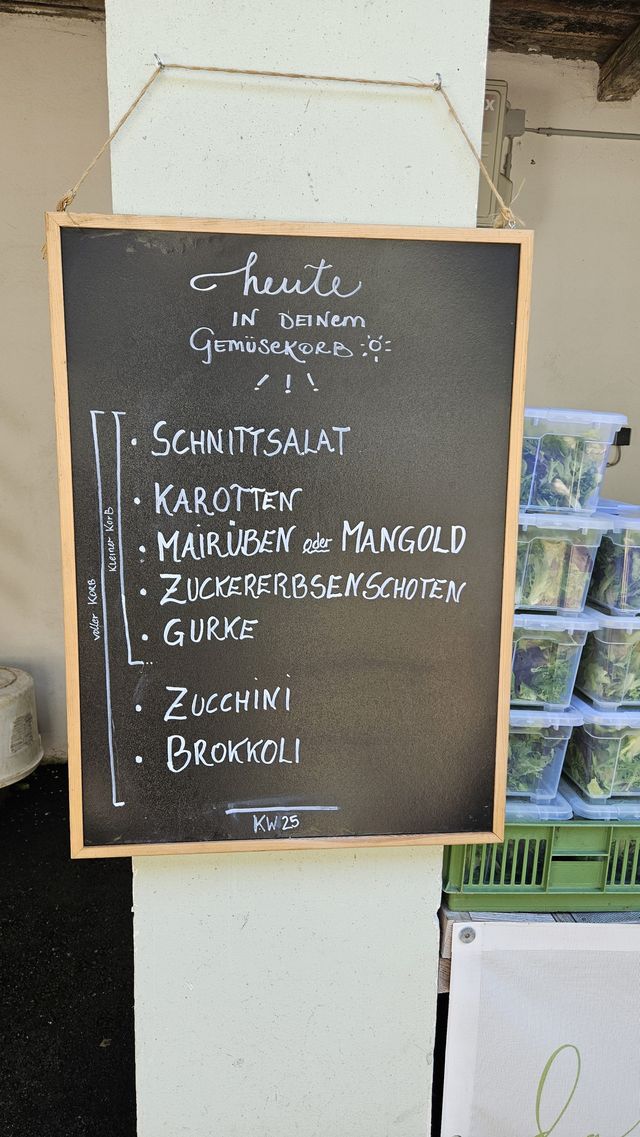 heute
IN DEINEM
GEMÜSEKORB
!!!
• SCHNITTSALAT
• KAROTTEN
• MAIRÜBEN oder MANGOLD
• ZUCKERERBSENSCHOTEN
• GURKE
• ZUCCHINI
• BROKKOLI
voller KORB
Kleiner KORB
KW 25